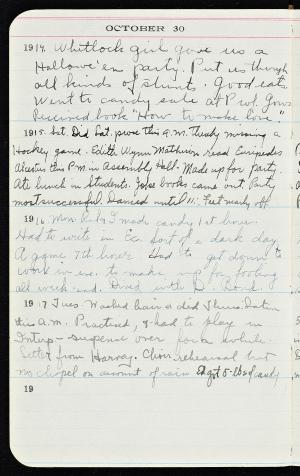 OCTOBER 30
1914. Whitlock girl gave us a
Hallowe'en party. Put us through
all kinds of stunts. Good eats
Went to candy sale at Prof. Gows
Received book "How to make love."
1915. Sat. Did Sat. work this a.m. Thusly missing a
Hockey game. Edith Wynn Mathison read Euripides
Alcestis this P.M. in Assembly Hall. Made up for party
Ate lunch in Students. Joke books came out. Party
most successful. Danced until 11:. Feet nearly off
1916 Mon. & I made candy 1st hour.
Had to write in Ec. Sort of a dark day.
A game 7th hour. Had to get down to
work in eve. to make up for fooling
all week-end. Dined with
1917 Tues. Washed hair & did Thurs. Latin
this a.m. Practised, & had to play in
Interp - suspense over for a while.
Letter from Harvey. Choir rehearsal but
no chapel on account of rain El got 5-lbs of candy
19